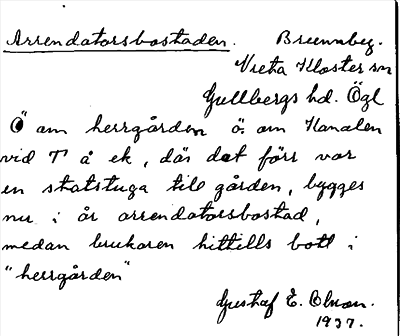 Arrendatorsbostaden. Brunnby.
Vreta Kloster sn
Gullbergs hd. Ögl
Ö om herrgården ö. om Kanalen
vid T å ek, där det förr var
en statstuga till gården, bygges
nu i år arrendatorsbostad,
medan brukaren hittills bott i
"herrgården"
Gustaf E. Olson.
1937.